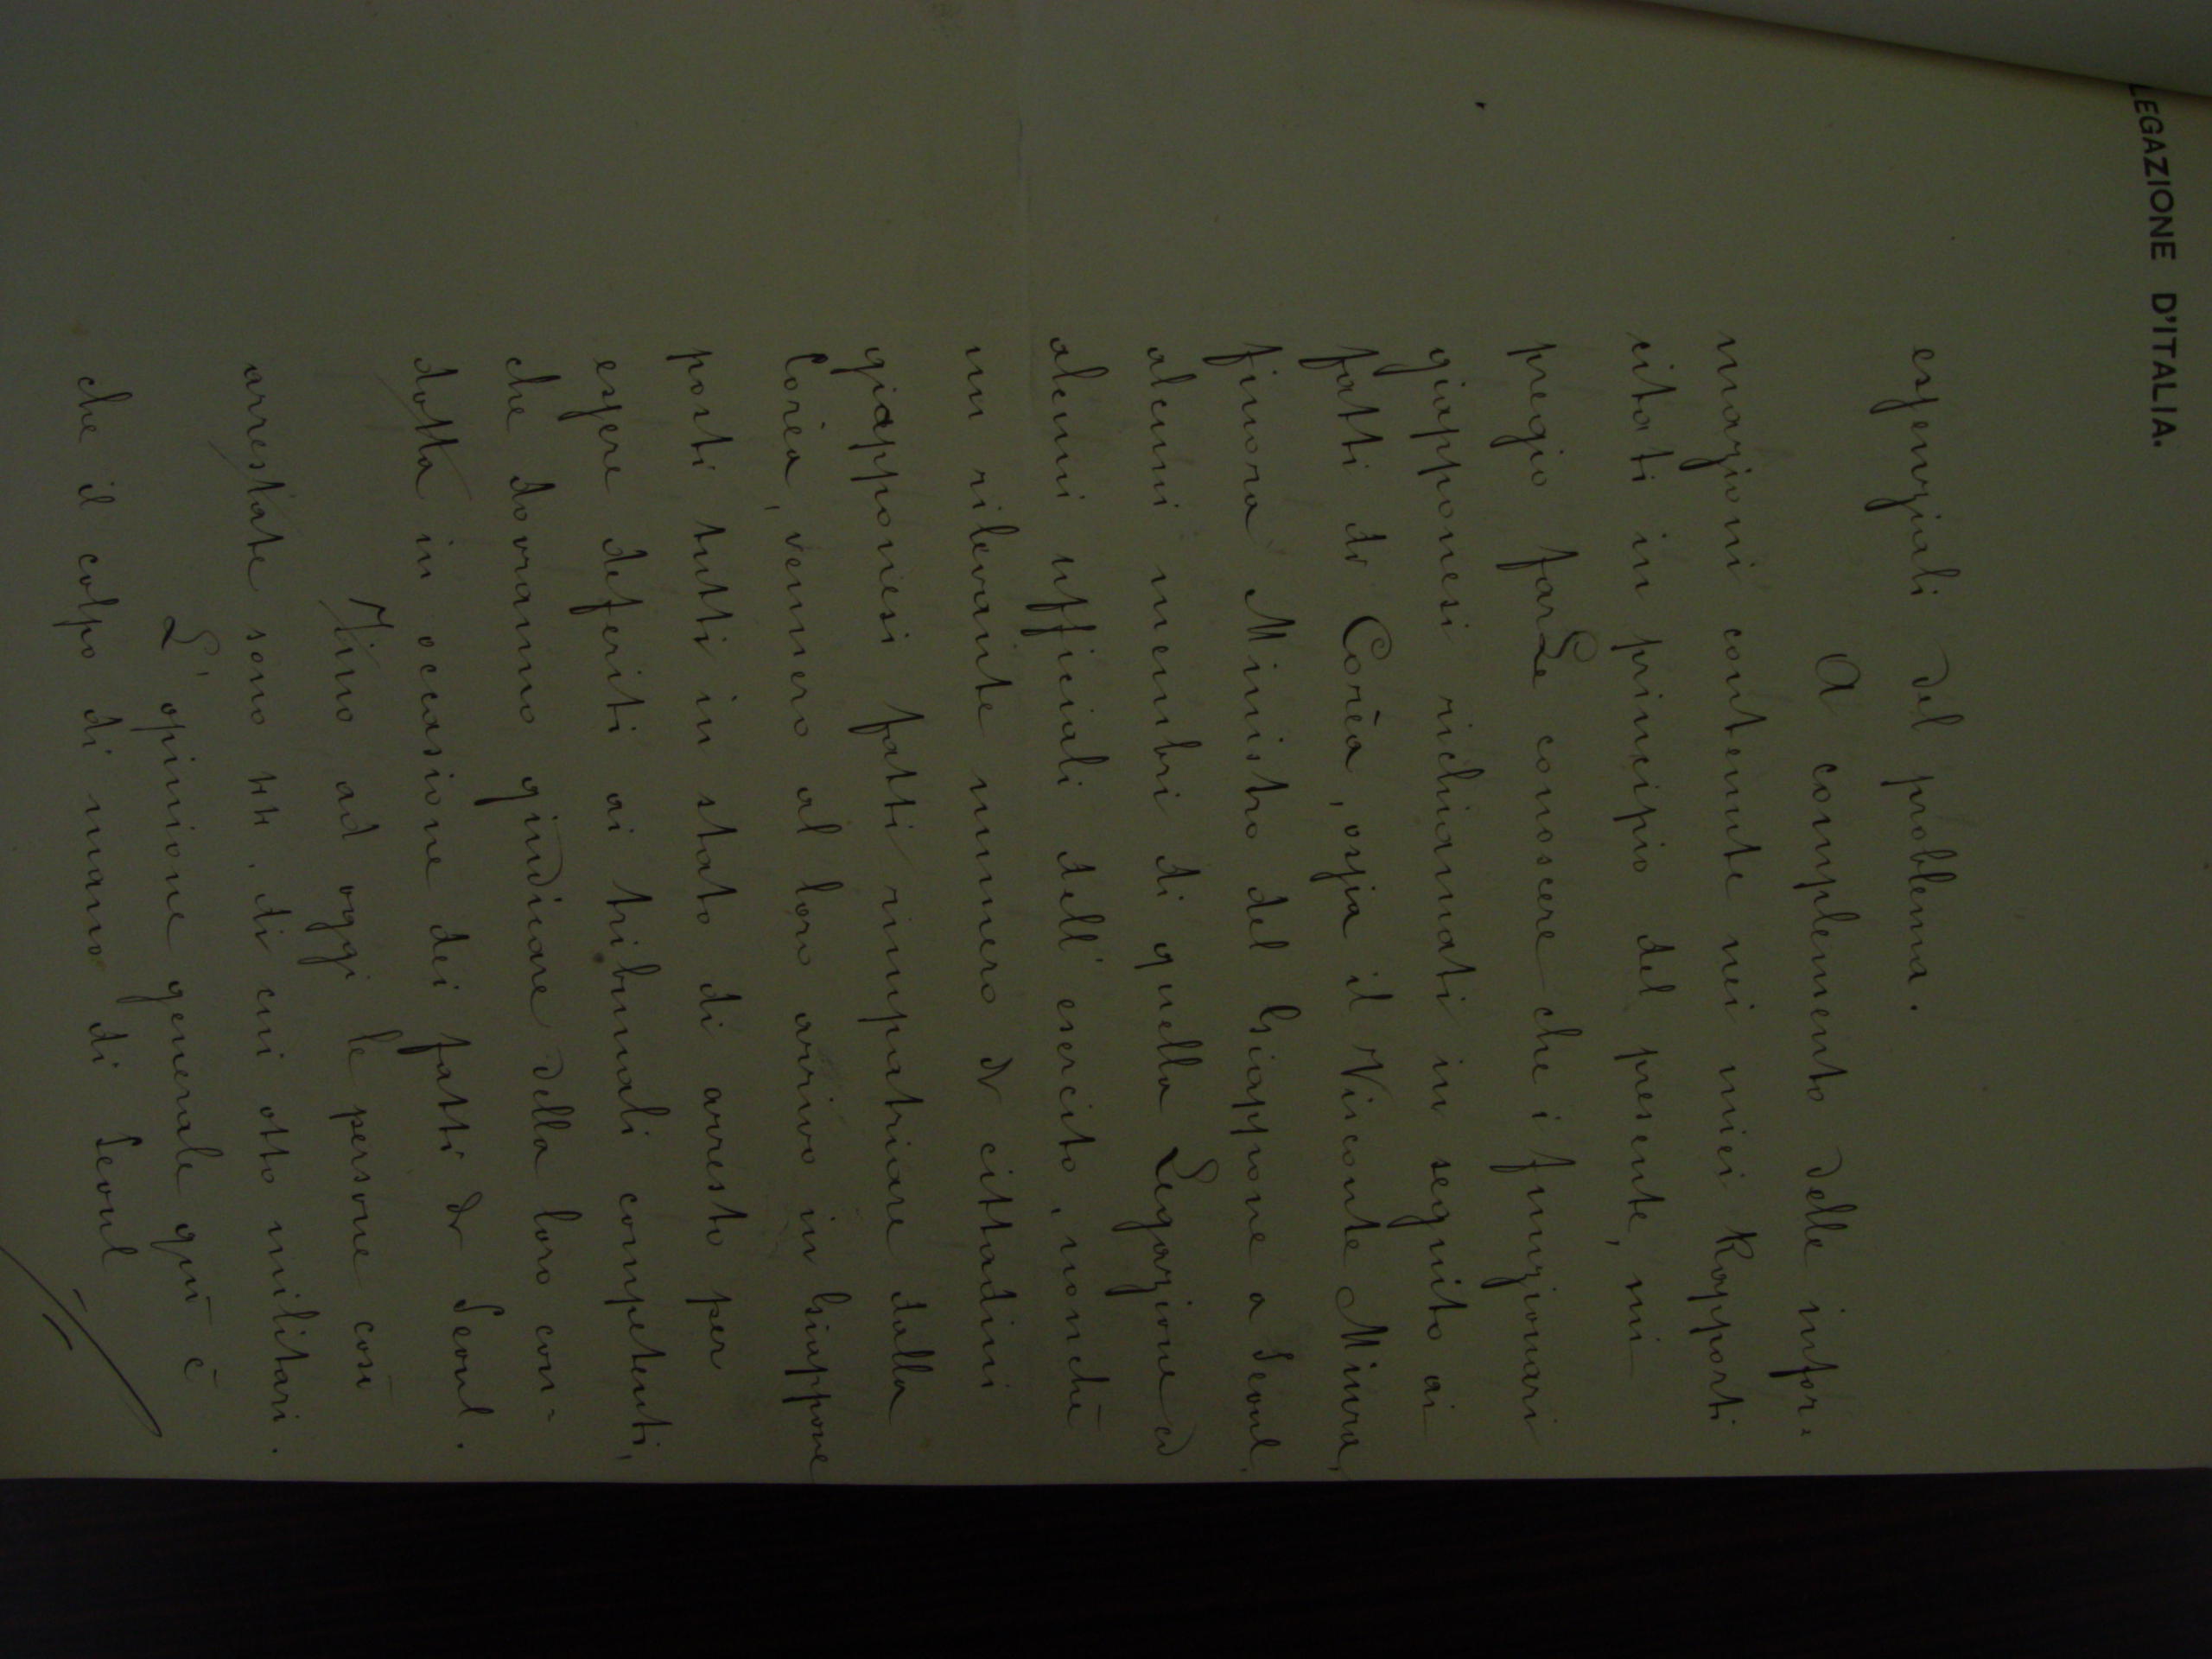 LEGAZIONE D'ITALIA.
essenziali del problema.
A complemento delle infor=
mazioni contenute nei miei Rapporti
citati in principio del presente, mi
pregio farLe conoscere che i funzionari
giapponesi richiamati in seguito ai
fatti di Corèa, ossia il Visconte Miura,
finora Ministro del Giappone a Seoul,
alcuni membri di quella Legazione ed
alcuni ufficiali dell'esercito, nonchè
un rilevante numero di cittadini
giapponesi fatti rimpatriare dalla
Corèa, vennero al loro arrivo in Giappone
posti tutti in stato di arresto per
essere deferiti ai tribunali competenti,
che dovranno giudicare della loro con=
dotta in occasione dei fatti di Seoul.
Fino ad oggi le persone così
arrestate sono 44, di cui otto militari.
L'opinione generale quì è
che il colpo di mano di Seoul